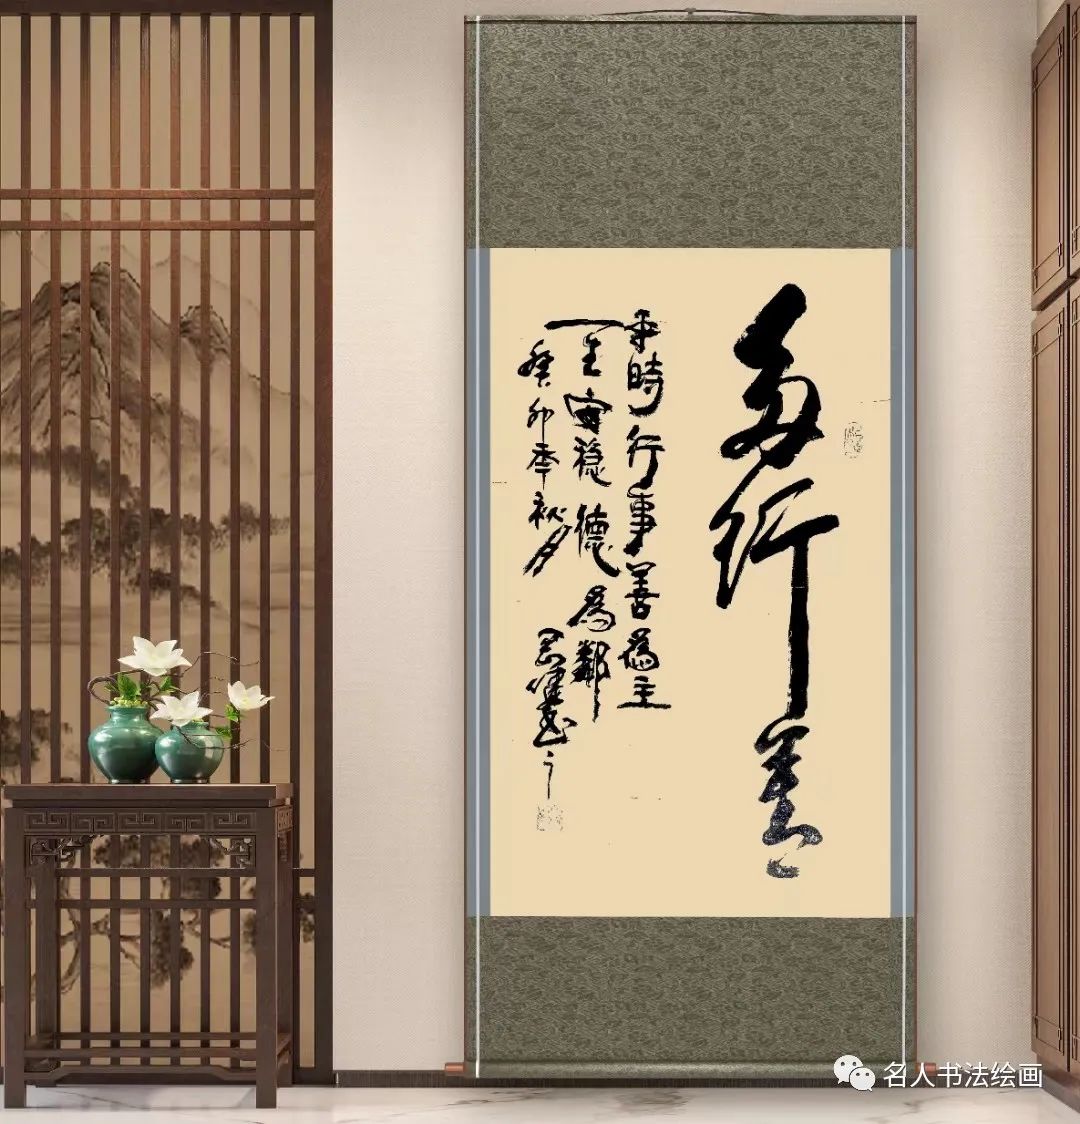 多行善
平時行事善為主
一生安稳德為鄰
癸卯季秋月
名人书法绘画